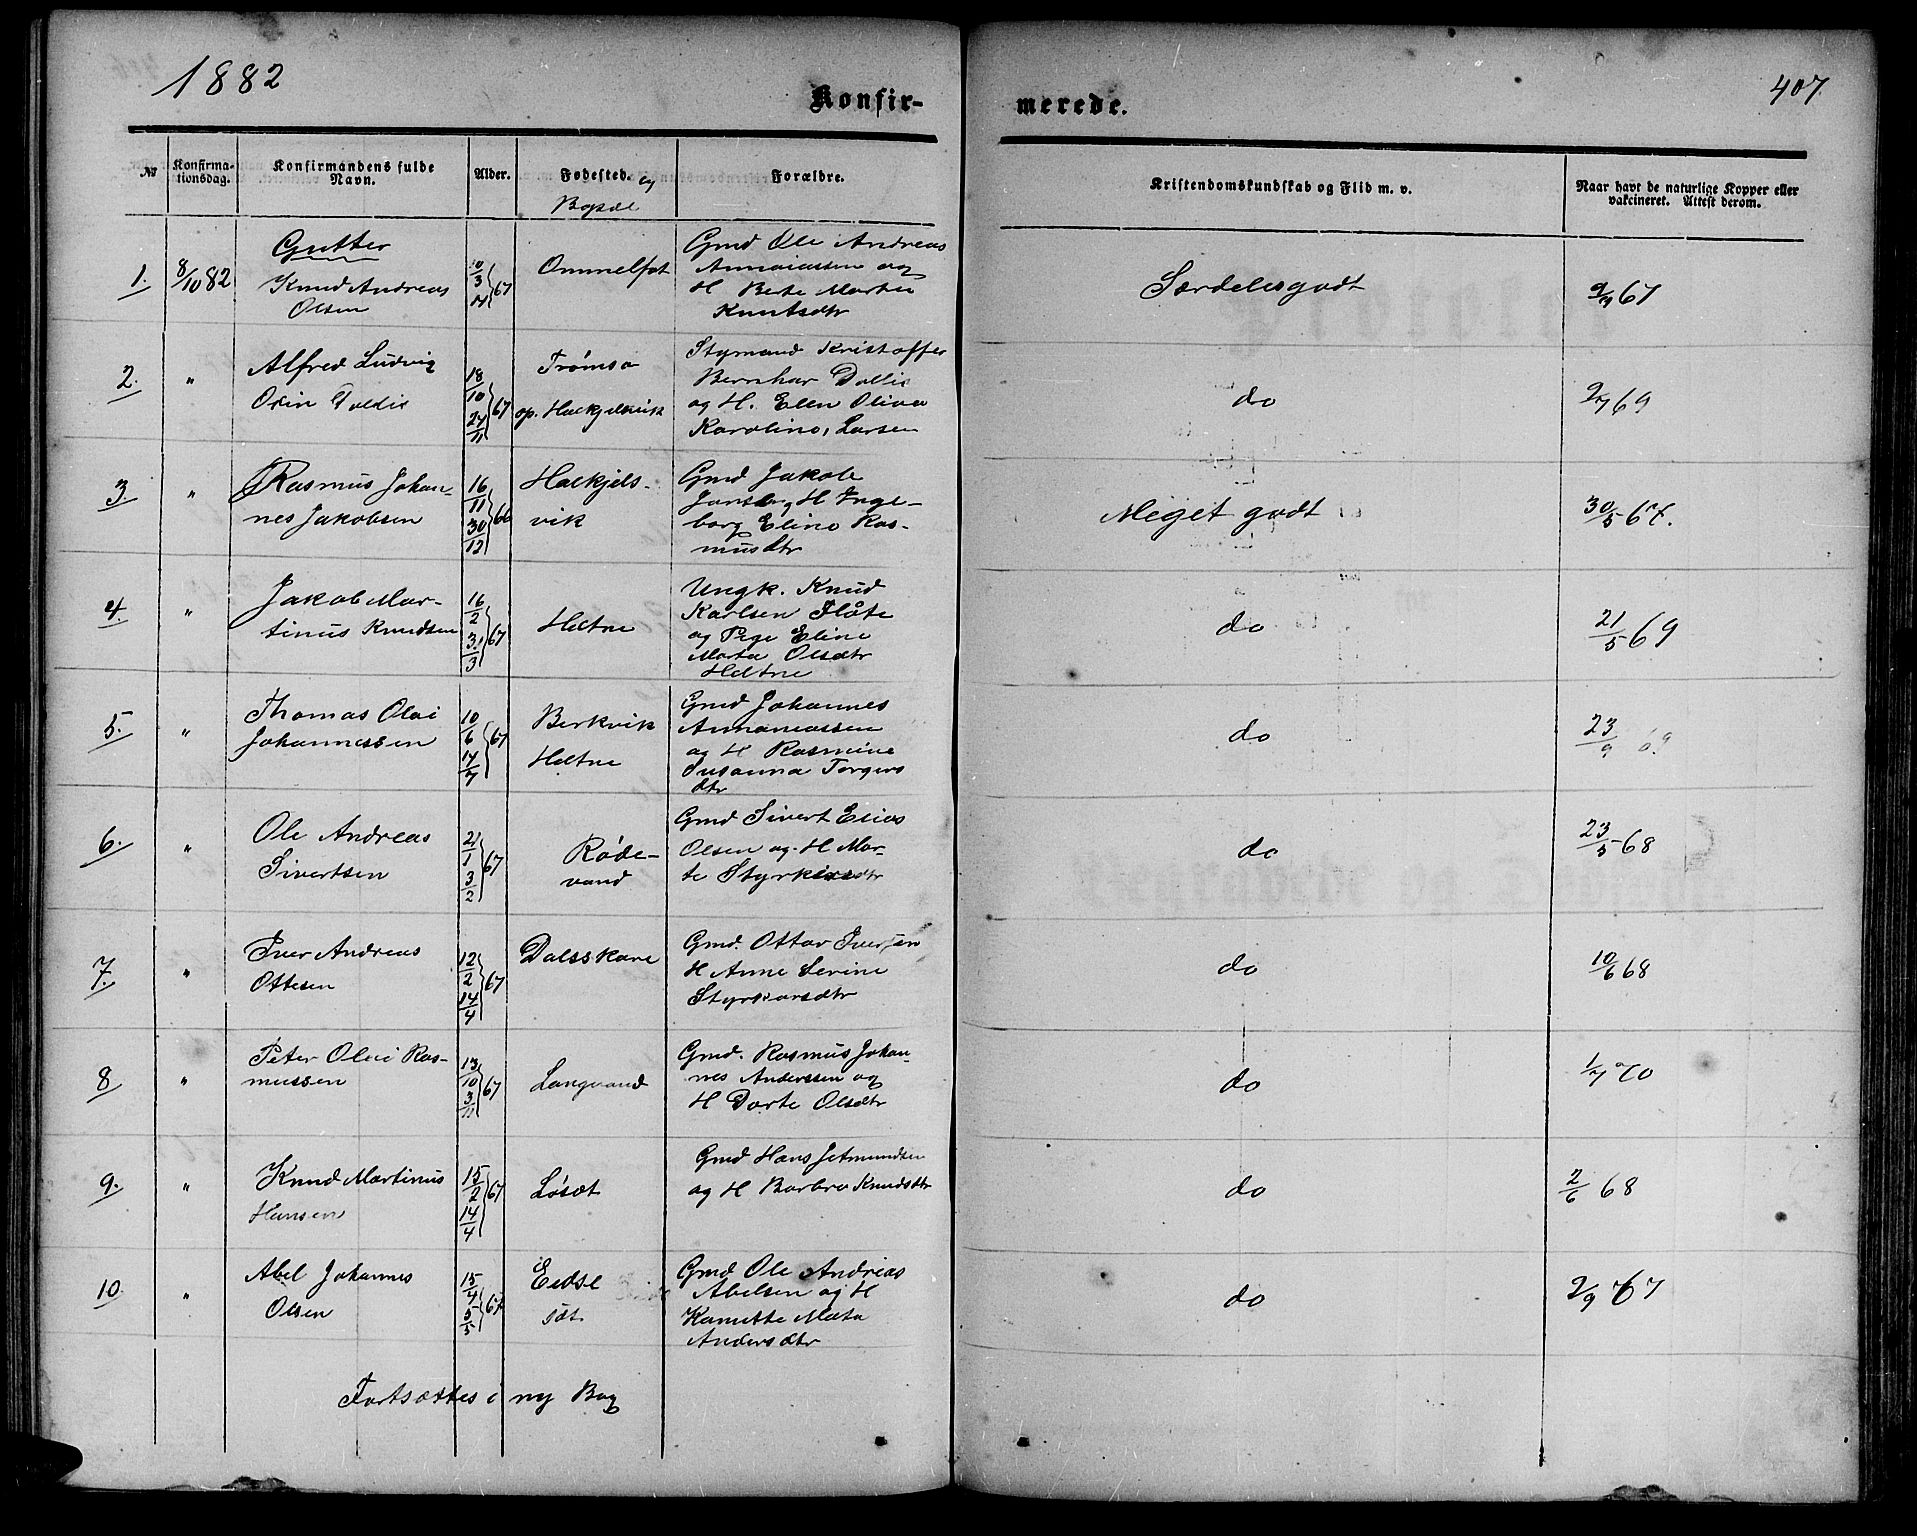 1882
407
Konfir-
merede.
No
Konfirma-
tionsdag.
Konfirmandens fulde
Navn.
Alder.
Fødested. og
Bopæl
Forældre.
Kristendomskundskab og Flid m. v.
Naar havt de naturlige Kopper eller
vakcineret. Attest derom.
Gutter
1. 8/10 82
Knud Andreas
Olsen
10/3 67
Ommelfot
Gmd Ole Andreas
Annaniassen og
H Berte Marta
Knutsdtr
Særdelesgodt
2/9 67
2. "
Alfred Ludvig
18/10 24/11 67
Tromsø
op. Hælkjelsvik
Stymand Kristoffer
Bernhar
og H. Elen Oliva
Karolina, Larsen
do
69
3 "
Rasmus Johan-
nes Jakobsen
16/11 30/12 66
Hælkjels-
vik
Gmd Jakob
Jonsen og H Inge-
borg Elino Ras-
musdtr
Meget godt
30/5 67.
4. "
Jakob Mar-
tinus Knudsen
16/2 31/3 67
Heltne
Ungk. Knud
Karlsen Flåte
og Pige Eline
Marta Olsdtr
Heltne
do
21/5 69
5. "
Thomas Olai
Johannessen
10/6 14/7 67
Berkvik
Heltne
Gmd Johannes
Annaniassen
og H Rasmine
Susanna Torgers
dtr
do
23/9 69
6. "
Ole Andreas
Sivertsen
21/1 3/2 67
Røde-
vand
Gmd Sivert Elias
Olsen og H Mar-
te Styrkersdtr
do
23/5 68
7. "
Iver Andreas
Ottesen
12/2 14/4 67
Dalsskare
Gmd. Ottar Iversen
H Anne Serine
Styrkarsdtr
do
10/6 68
8 "
Peter Olai Ras-
mussen
13/10 3/11 67
Langvand
Gmd. Rasmus Johan-
nes Anderssen og
H Dorte Olsdtr
do
1/7 70
9. "
Knud Martinus
Hansen
15/2 14/4 67
Løsæt
Gmd Hans Jetmundsen
og H Barbro Knudsdtr
do
2/6 68
10. "
Abel Johannes
Olsen
15/4 5/5 67
Eidse
sæt
Gmd Ole Andreas
Abelsen og H
Kanutte Mæta
Andersdtr
do
2/9 67
Fortsættes i ny Bog